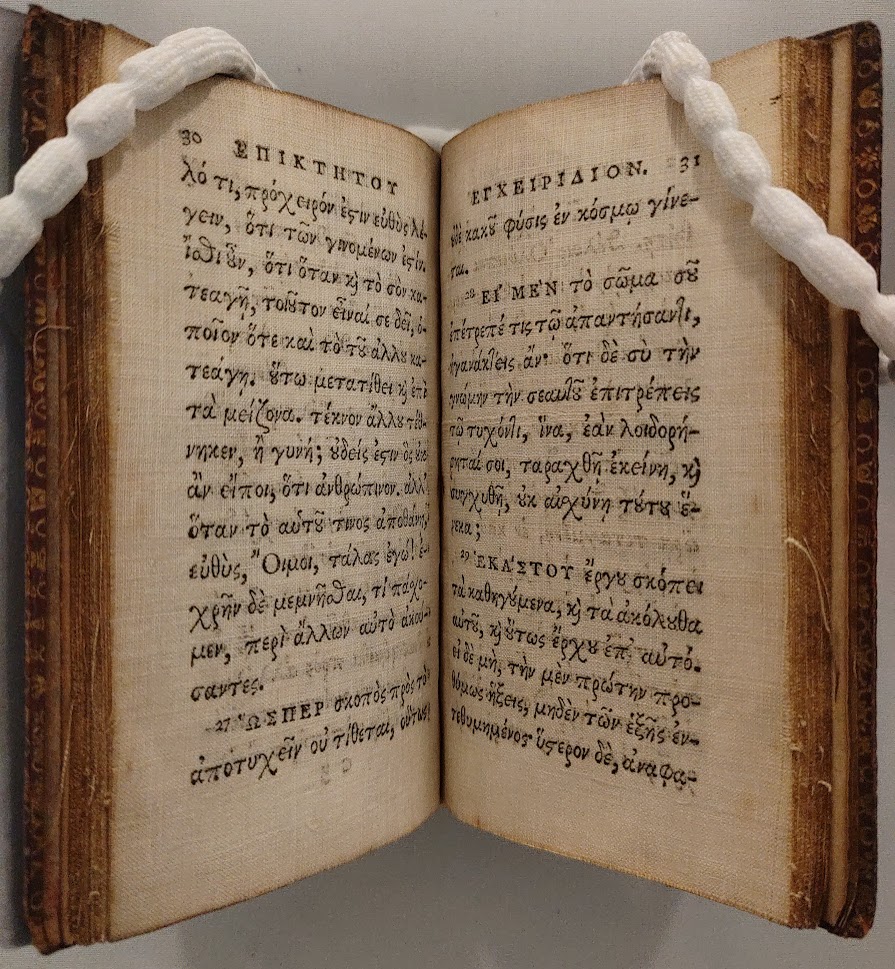 30 ΕΠΙΚΤΗΤΟΥ
λό τι, πρόχειρόν ἐςιν εὐθὺς λέ-
γειν, ὅτι τῶν γινομένων ἐςίν.
ἴσθι ȣ̓͂ν, ὅτι ὅταν κ̀ τὸ σὸν κα-
τεαγῇ, τοιȣ͂τον εἶναί σε δεῖ, ὁ-
ποῖον ὅτε καὶ τὸ τȣ͂ ἄλλȣ κα-
τεάγη. ȣ̔́τω μετατίθει κ̀ ἐπὶ
τὰ μείζονα. τέκνον ἄλλȣ τέθ-
νηκεν, ἢ γυνή; ȣ̓δείς ἐςιν ὃς ȣ̓κ
ἂν εἴποι, ὅτι ἀνθρώπινον. ἀλλ'
ὅταν τὸ αὑτȣ͂ τινος ἀποθάνῃ,
εὐθὺς, Οἴμοι, τάλας ἐγώ! ἐ-
χρῆν δὲ μεμνῆσθαι, τί πάσχο-
μεν, περὶ ἄλλων αὐτὸ ἀκού-
σαντες.
27 ὭΣΠΕΡ σκοπὸς πρὸς τὸ
ἀποτυχεῖν οὐ τίθεται, οὕτως
ἘΓΧΕΙΡΙΔΙΟΝ. 31
ȣ̓δὲ κακȣ͂ φύσις ἐν κόσμῳ γίνε-
ται.
28 ΕἸ ΜῈΝ τὸ σῶμα σȣ͂
ἐπέτρεπέ τις τῷ ἀπαντήσαντι,
ἠγανάκτεις ἄν· ὅτι δὲ σὺ τὴν
γνώμην τὴν σεαυτȣ͂ ἐπιτρέπεις
τῷ τυχόντι, ἵνα, ἐὰν λοιδορή-
ρηταί σοι, ταραχθῇ ἐκείνη, κ̀
συγχυθῇ, ȣ̓κ αἰσχύνῃ τȣ́τȣ ἕ-
νεκα;
29 ἙΚΆΣΤΟΥ ἔργȣ σκόπει
τὰ καθηγȣ́μενα, κ̀ τὰ ἀκόλȣθα
αὐτȣ͂, κ̀ ȣ̔́τως ἔρχȣ ἐπ' αὐτό.
εἰ δὲ μὴ, τὴν μὲν πρώτην προ-
θύμως ἥξεις, μηδὲν τῶν ἑξῆς ἐν-
τεθυμημένος· ὕςερον δὲ, ἀναφα-